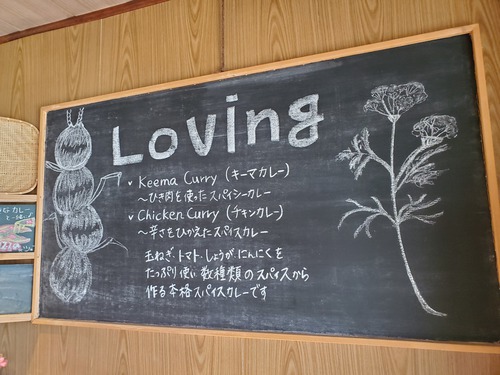 Loving
✓ Keema Curry (キーマカレー)
〜ひき肉を使ったスパイシーカレー
✓ Chicken Curry (チキンカレー)
〜辛さをひかえたスパイスカレー
玉ねぎ、トマト、しょうが、にんにくを
たっぷり使い 数種類のスパイスから
作る本格スパイスカレーです